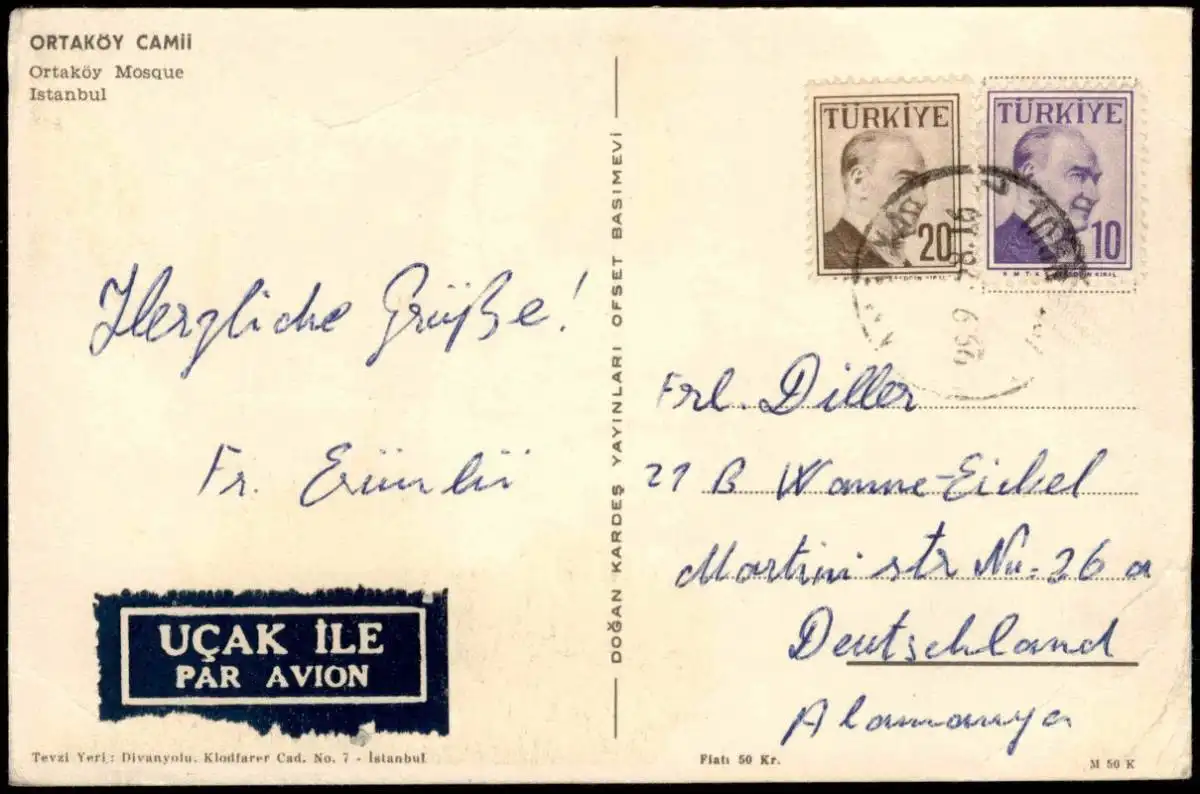 ORTAKÖY CAMİİ
Ortaköy Mosque
Istanbul
TÜRKİYE
20
TÜRKİYE
10
Herzliche Grüße!
Fr.
UÇAK İLE
PAR AVION
DOĞAN KARDEŞ YAYINLARI OFSET BASIMEVİ
Frl. Diller
21 B Wanne-Eickel
Martinistr Nu. 26 a
Deutschland
Alamanya
Tevzi Yeri: Divanyolu. Klodfarer Cad. No. 7 - İstanbul
Fiatı 50 Kr.
M 50 K